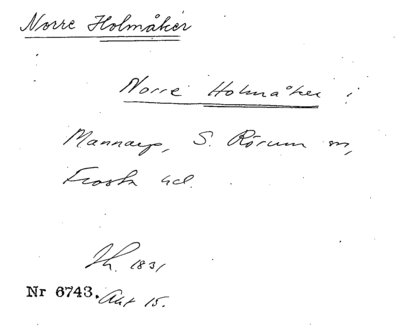 Norre Holmåker
Norre Holmåker i
Mannarp, S. Rörum sn,
Frosta hd.
Jh. 1831
Nr 6743. Akt 15.